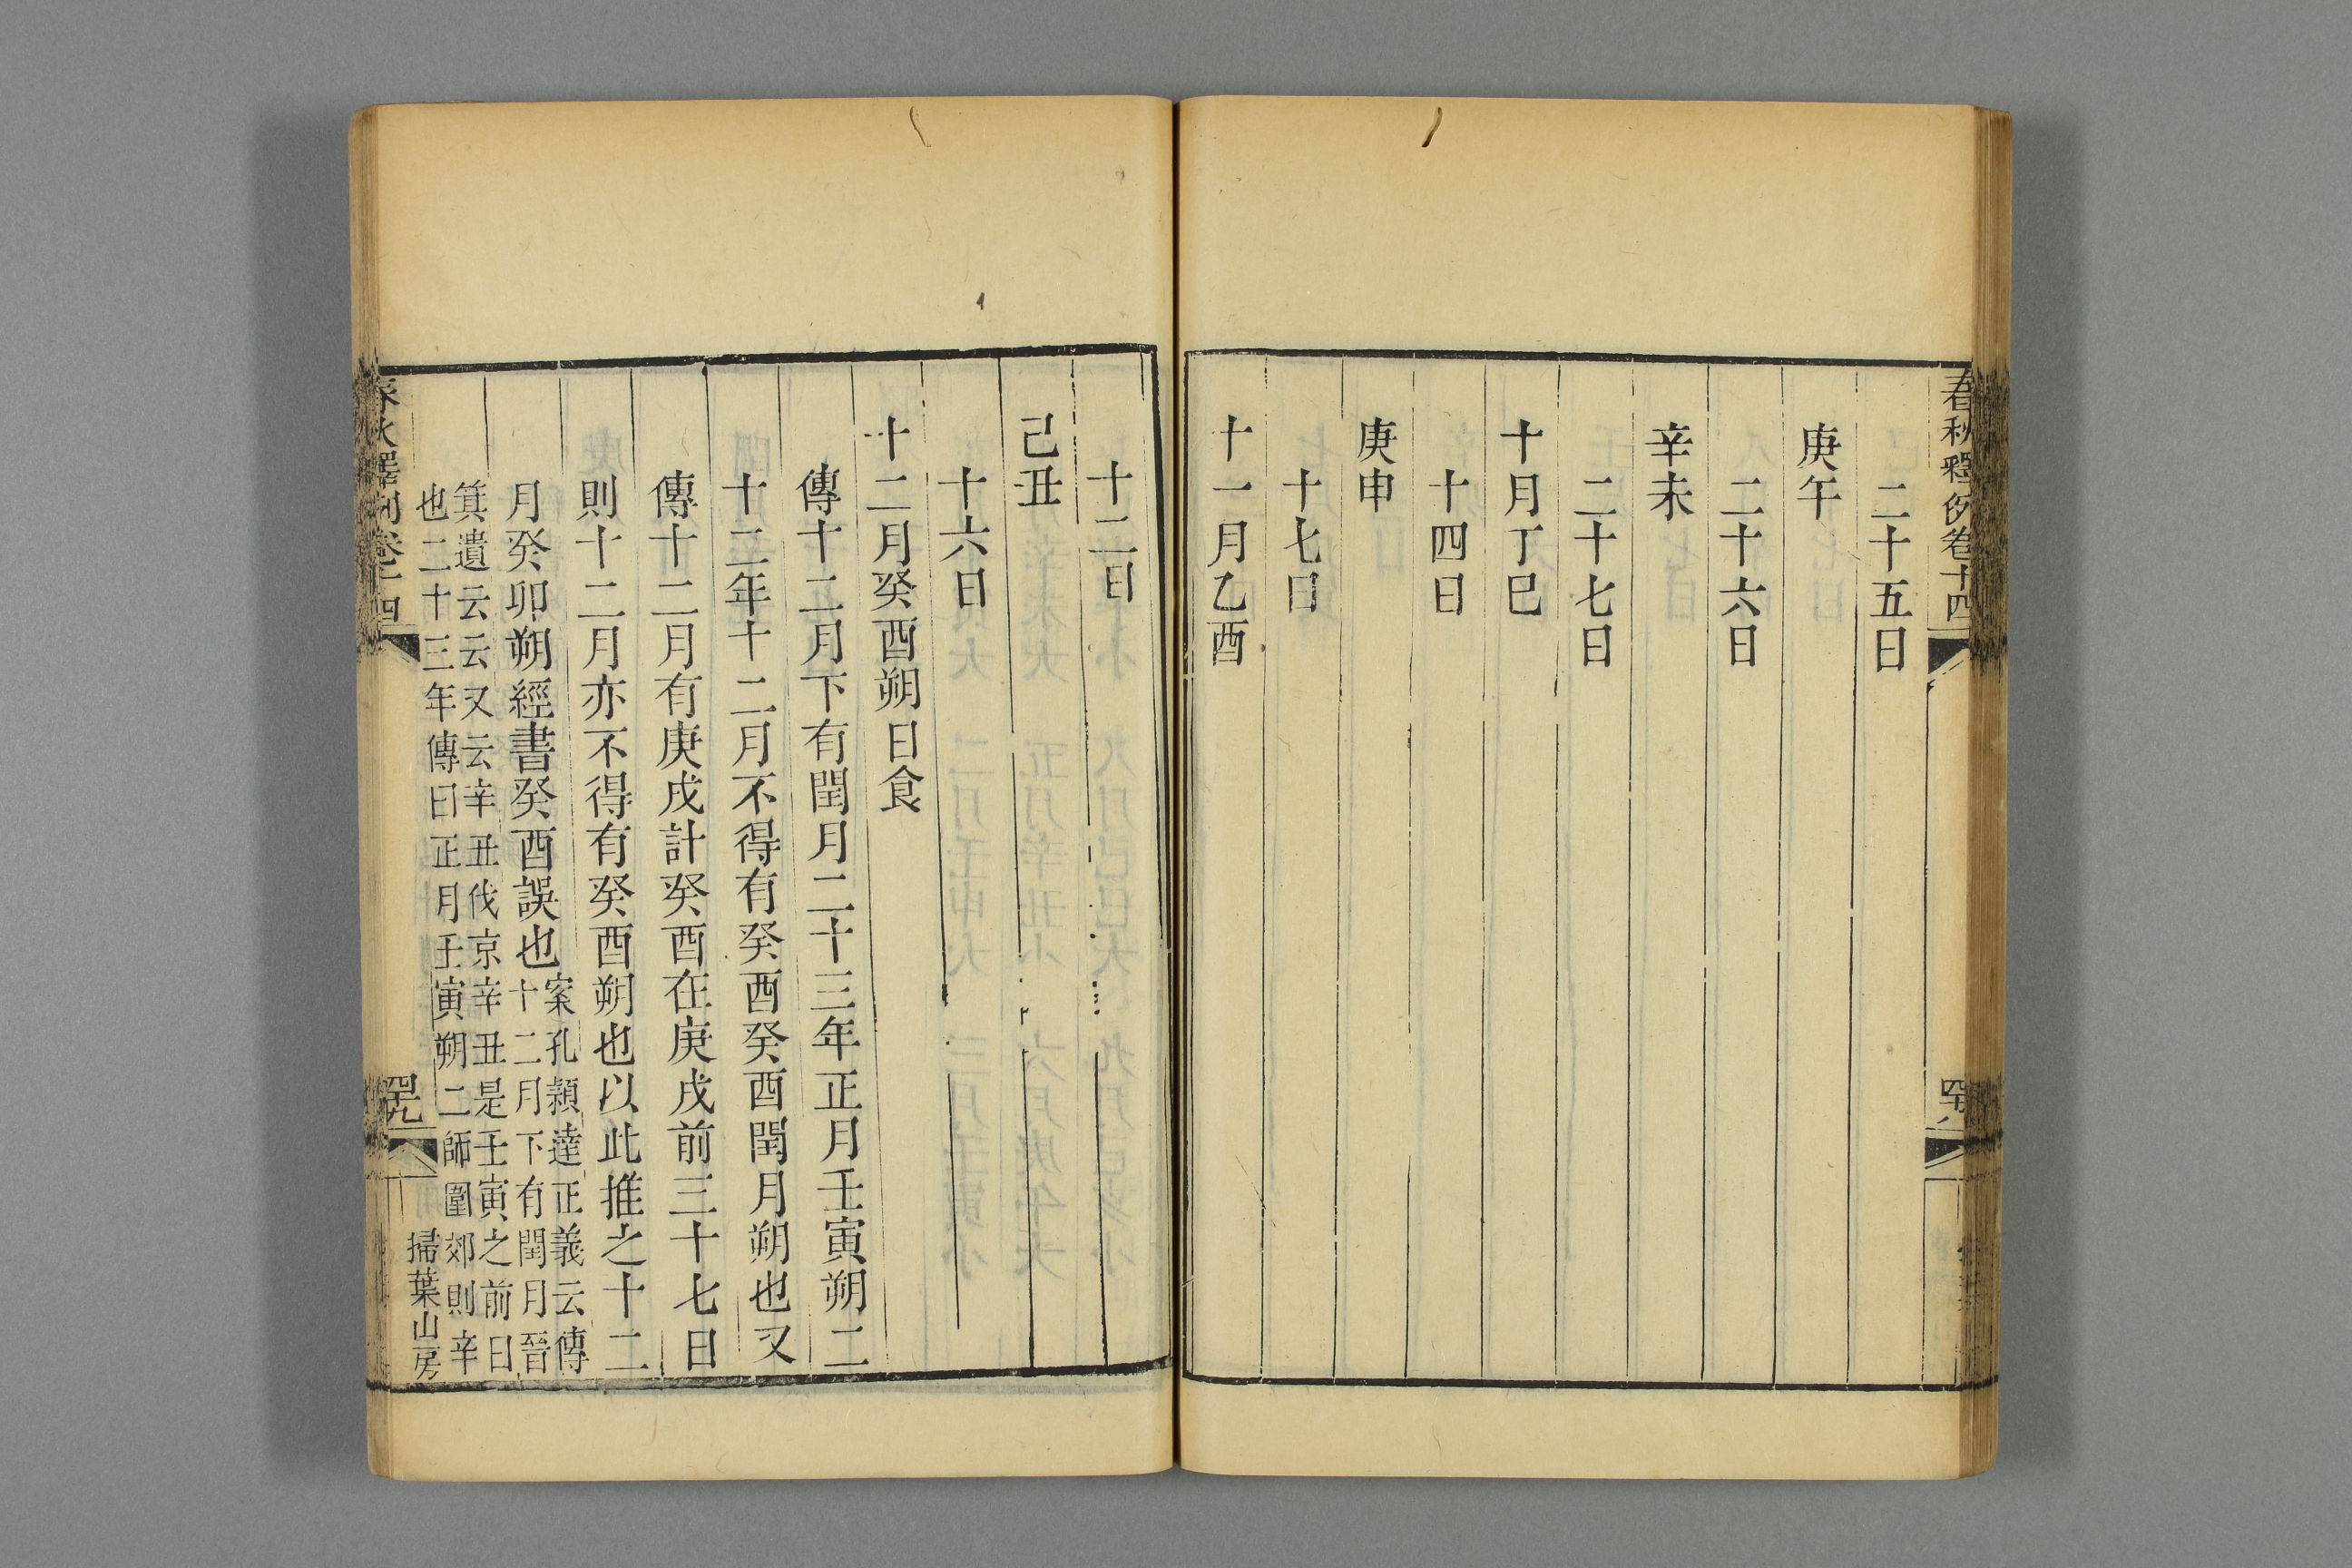 春秋釋例卷十四
二十五日
庚午
二十六日
辛未
二十七日
十月丁巳
十四日
庚申
十七日
十一月乙酉
十二日
己丑
十六日
十二月癸酉朔日食
傳十二月下有閏月二十三年正月壬寅朔二
十二年十二月不得有癸酉癸酉閏月朔也又
傳十二月有庚戌計癸酉在庚戌前三十七日
則十二月亦不得有癸酉朔也以此推之十二
月癸卯朔經書癸酉誤也案孔穎達正義云傳
十二月下有閏月晉
箕遺云云又云辛丑伐京辛丑是壬寅之前日
也二十三年傳曰正月壬寅朔二師圍郊則辛
春秋釋例卷十四
四九
掃葉山房